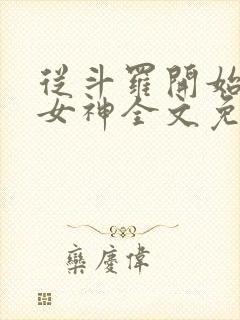 從斗羅開始
女神全文免
欒慶偉